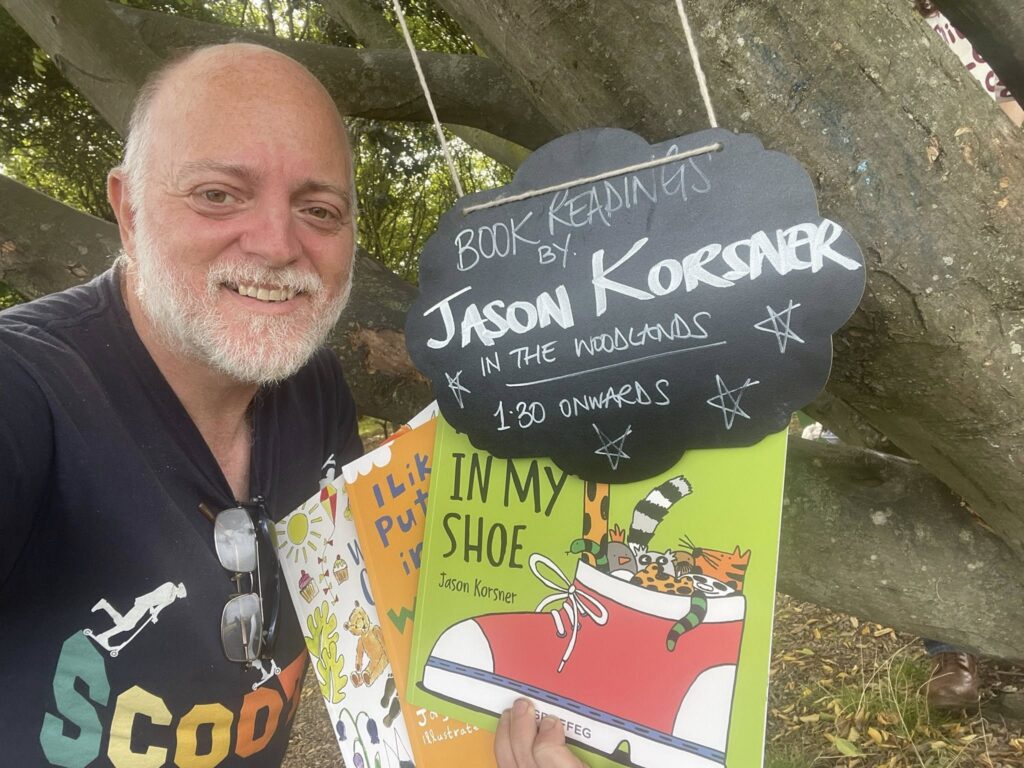 BOOK READINGS
BY.
JASON KORSNER
IN THE WOODLANDS
1·30 ONWARDS
IN MY
SHOE
Jason Korsner
I Lik
Put
in
SCOO